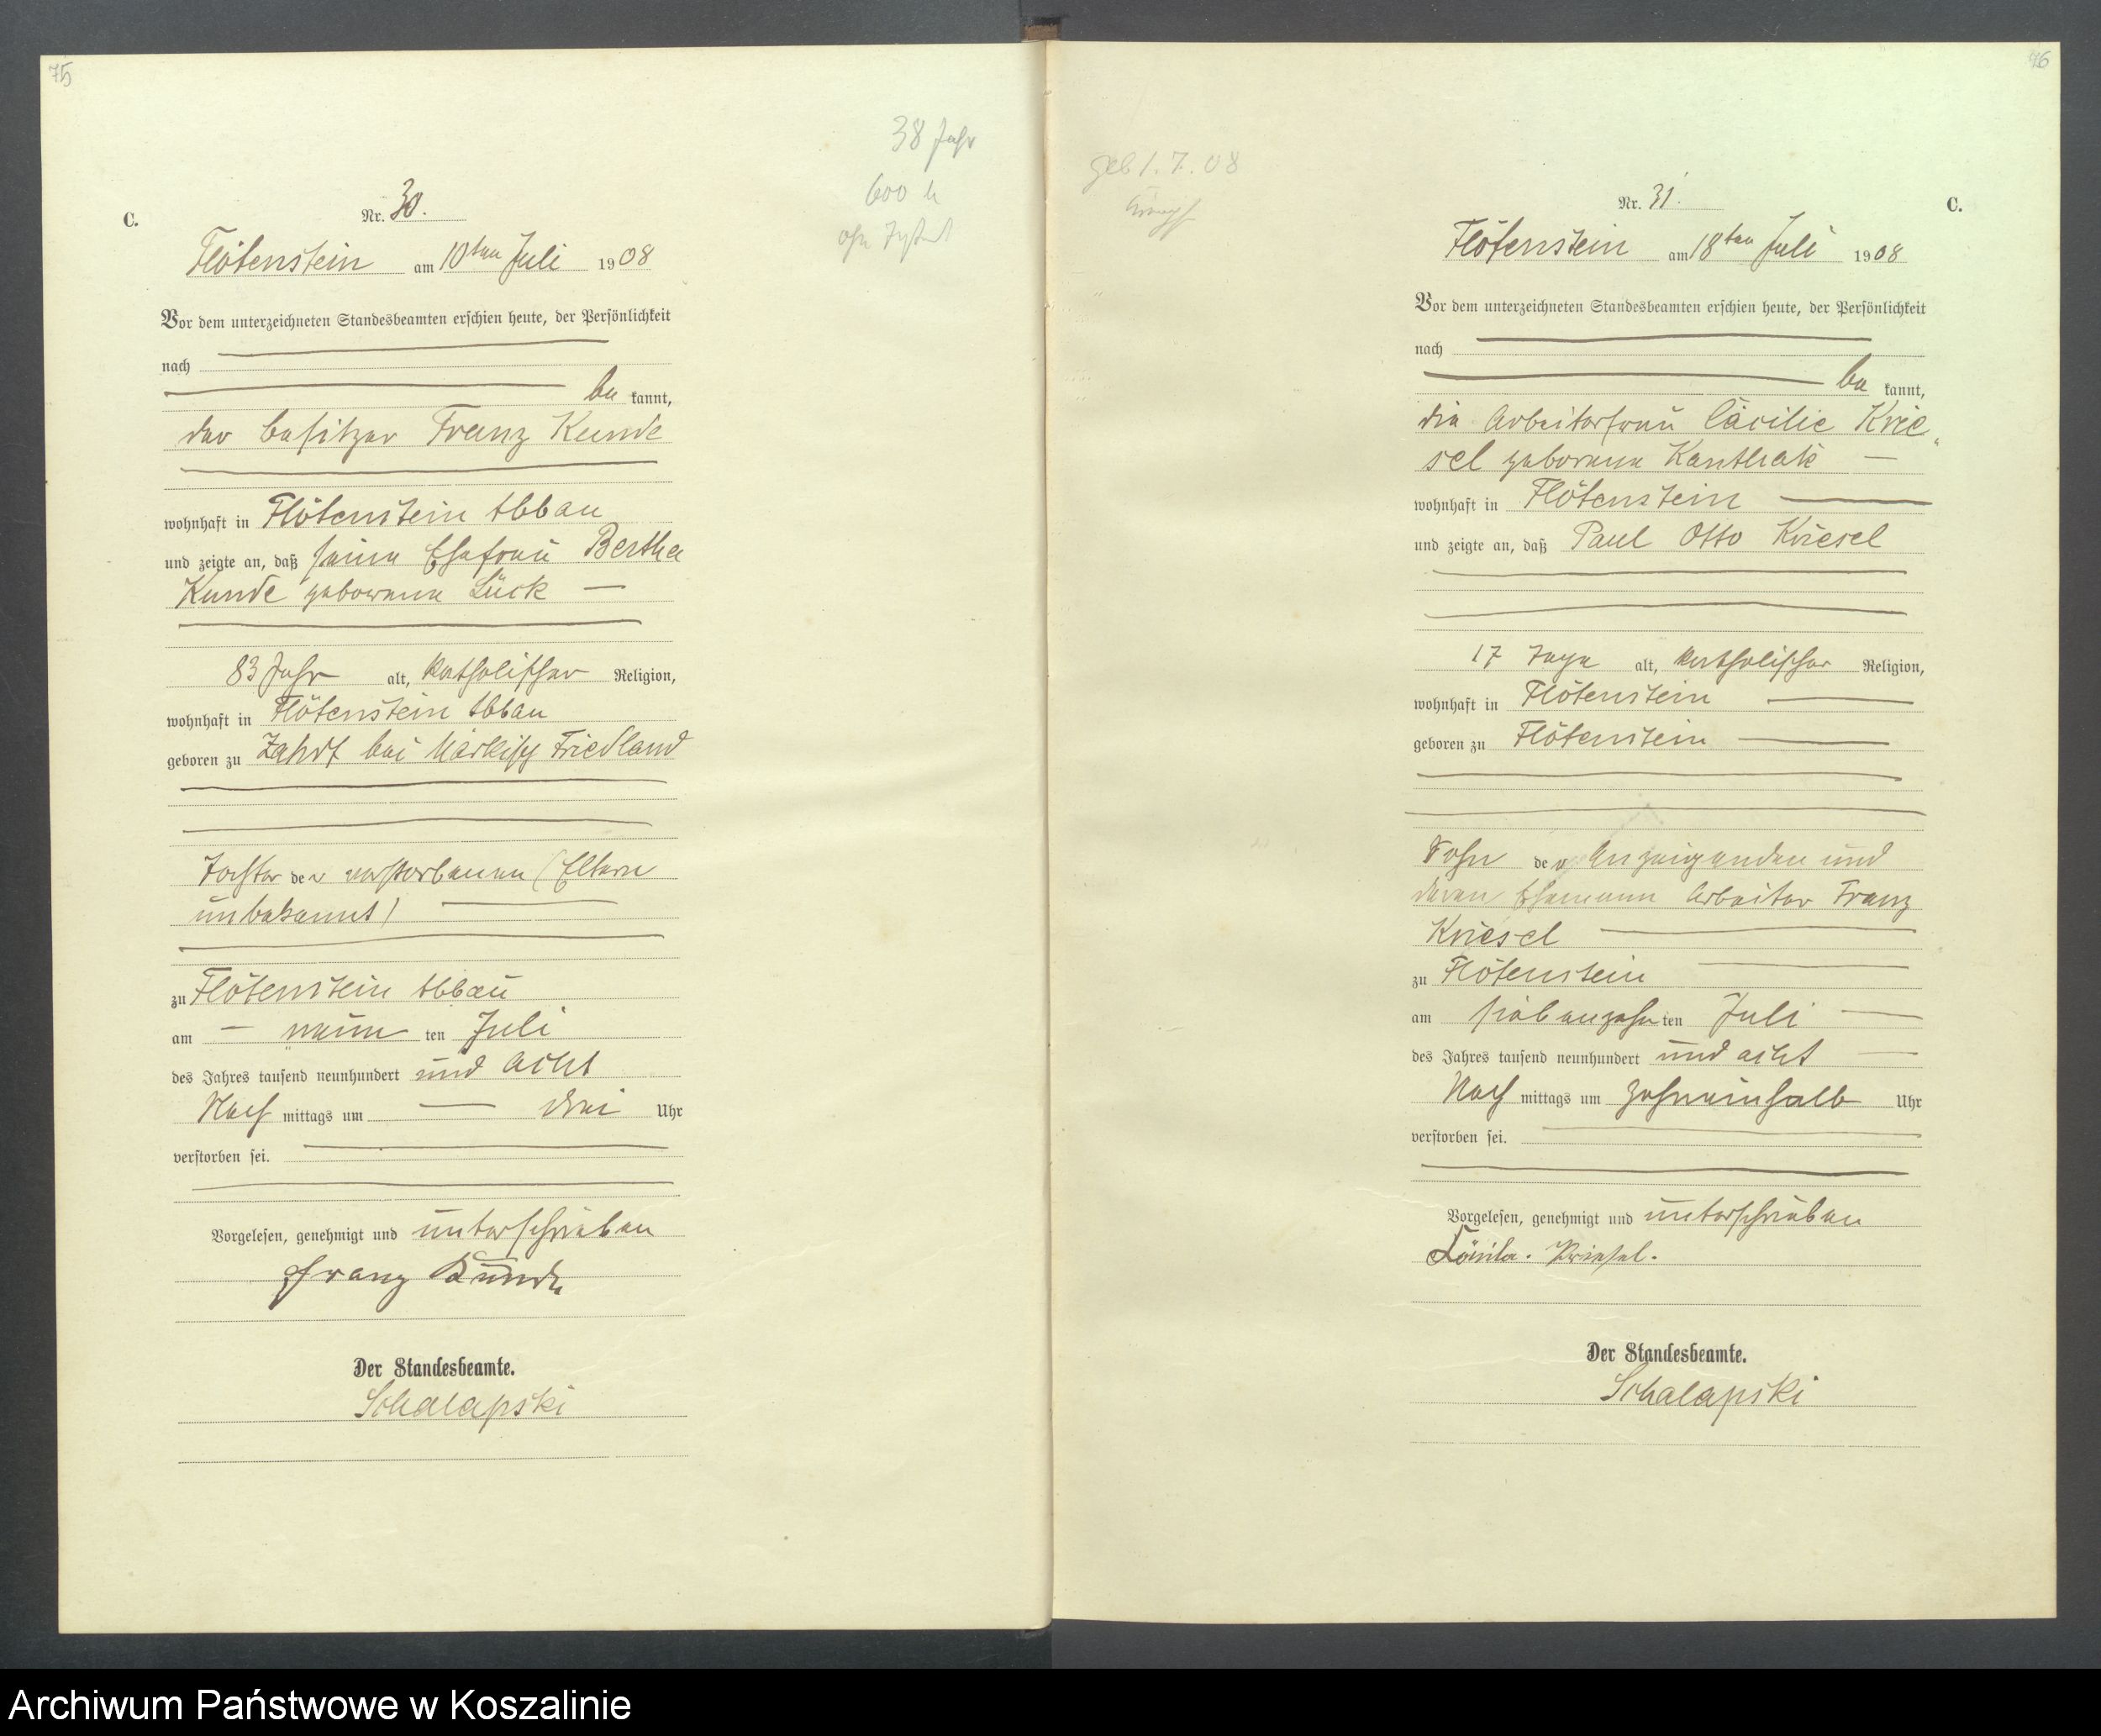 75
38 Jahr
600 M
C.
Nr. 30.
Flötenstein am 10ten Juli 1908
Vor dem unterzeichneten Standesbeamten erschien heute, der Persönlichkeit
nach
be kannt,
der Besitzer Franz Kunde
wohnhaft in Flötenstein Abbau
und zeigte an, daß seine Ehefrau Bertha
Kunde geborene Lück —
83 Jahr alt, katholischer Religion,
wohnhaft in Flötenstein Abbau
geboren zu Zahdt bei Märkisch Friedland
Tochter der verstorbenen (Eltern
unbekannt)
zu Flötenstein Abbau
am — neun ten Juli
des Jahres tausend neunhundert und acht
Nach mittags um — drei Uhr
verstorben sei.
Vorgelesen, genehmigt und unterschrieben
Franz Kunde
Der Standesbeamte.
Schalapski
76
geb 1.7.08
C.
Nr. 31.
Flötenstein am 18ten Juli 1908
Vor dem unterzeichneten Standesbeamten erschien heute, der Persönlichkeit
nach
be kannt,
die Arbeiterfrau Cäcilie Krie„
sel geborene Kanthak —
wohnhaft in Flötenstein —
und zeigte an, daß Paul Otto Kriesel
17 Tage alt, katholischer Religion,
wohnhaft in Flötenstein —
geboren zu Flötenstein —
Sohn der Anzeigenden und
deren Ehemann Arbeiter Franz
Kriesel —
zu Flötenstein —
am siebenzehn ten Juli —
des Jahres tausend neunhundert und acht —
Nach mittags um zehneinhalb Uhr
verstorben sei.
Vorgelesen, genehmigt und unterschrieben
Kriesel.
Der Standesbeamte.
Schalapski
Archiwum Państwowe w Koszalinie